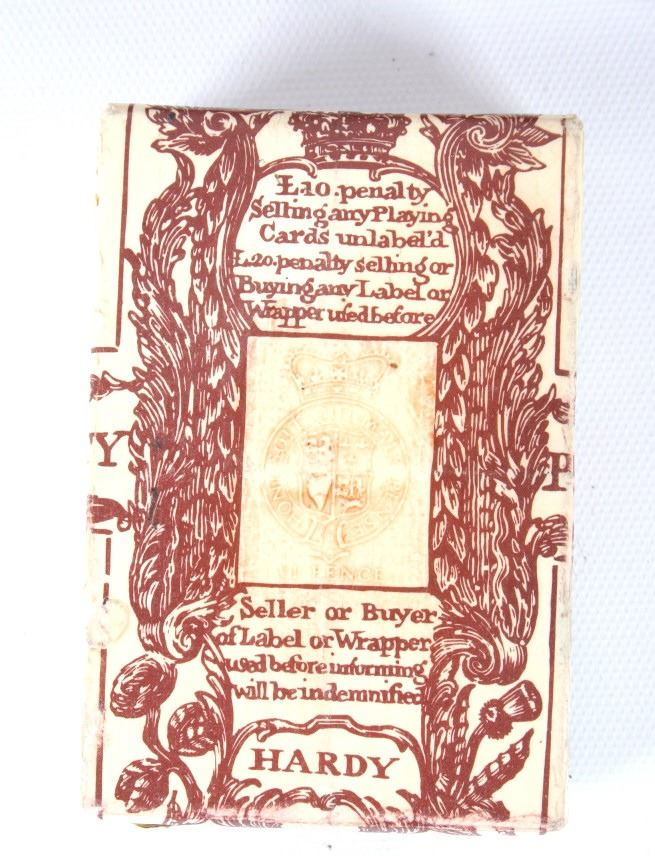 £10. penalty
Selling any Playing
Cards unlabel'd
£20. penalty selling or
Buying any Label or
Wrapper used before
Y
P
PENCE
Seller or Buyer
of Label or Wrapper
used before informing
will be indemnified
HARDY